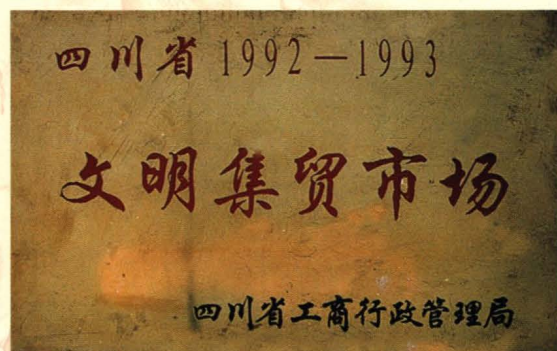 四川省1992—1993
文明集贸市场
四川省工商行政管理局